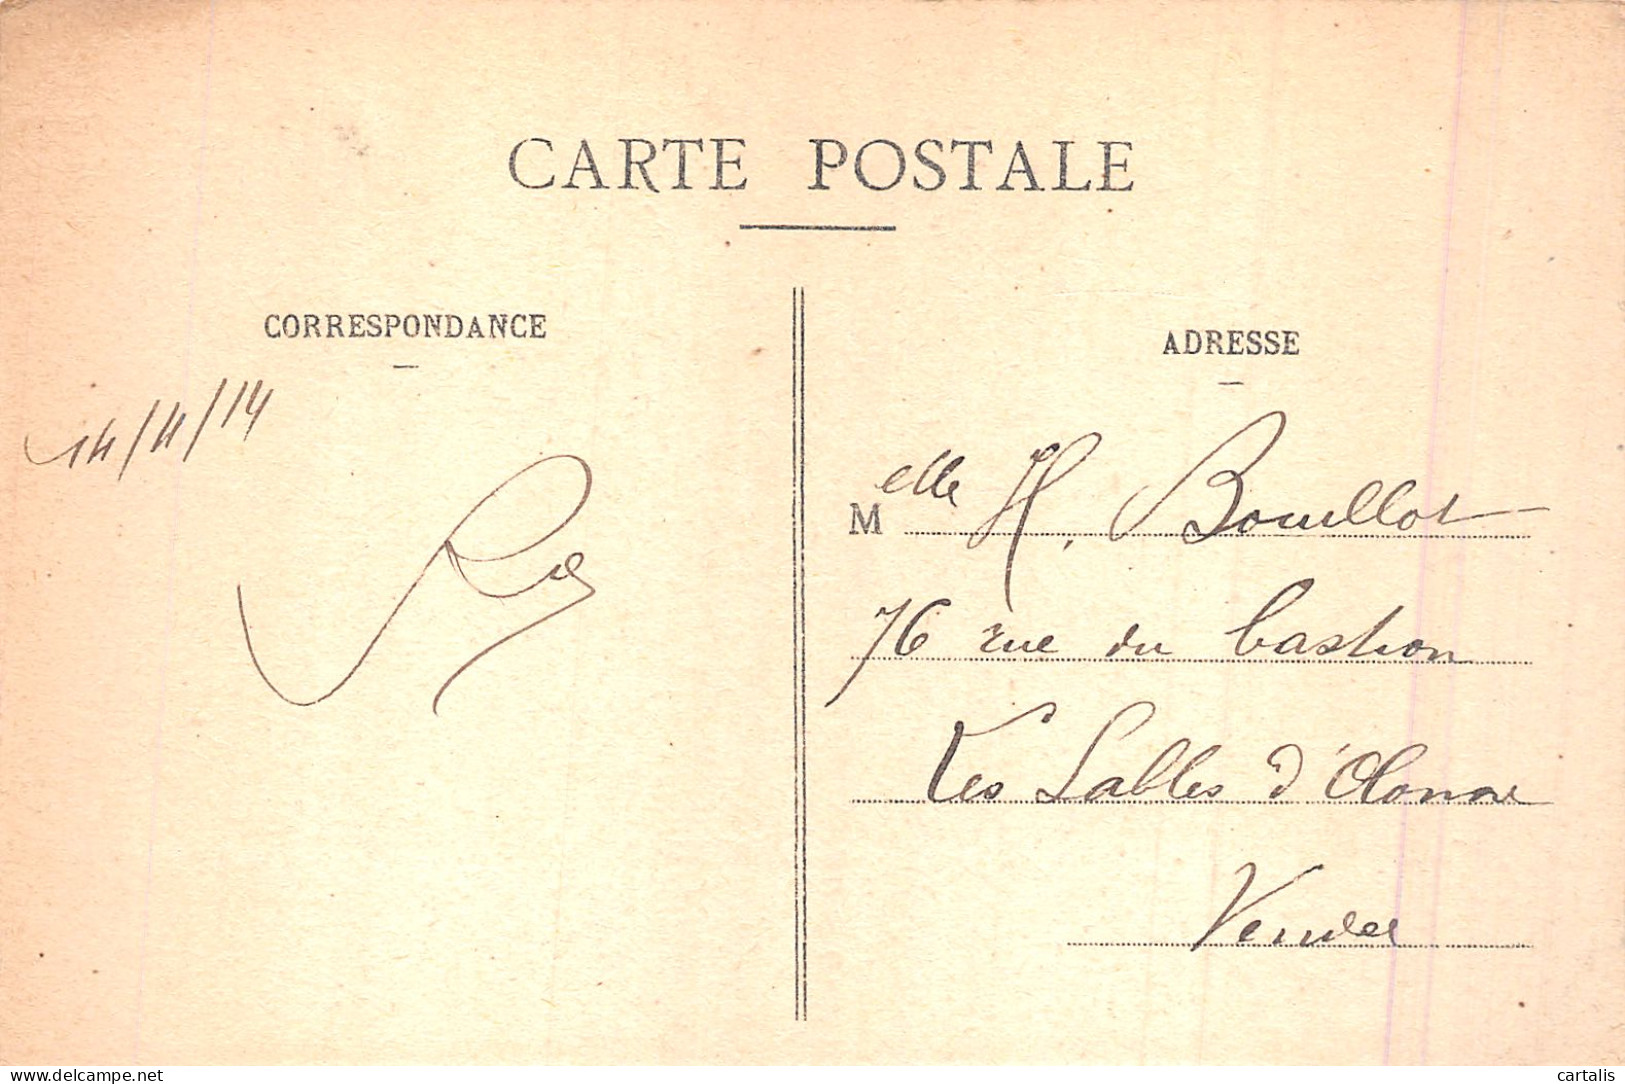 CARTE POSTALE
CORRESPONDANCE
ADRESSE
14/11/14
Melle H. Bouillot
76 rue du bastion
Les Sables d'Olonne
Vendée
delcampe.net
cartalis